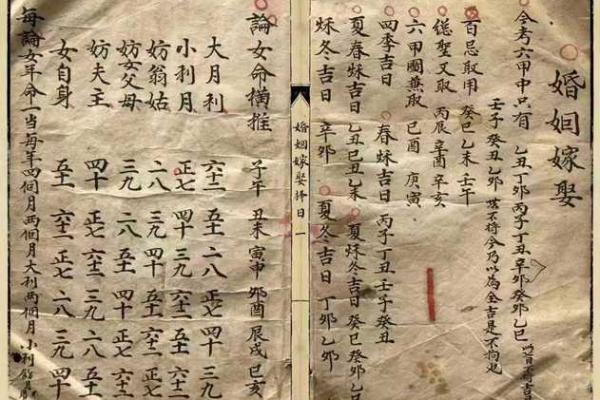 婚姻嫁娶
今考六甲中只有 乙丑丁卯丙子丁丑辛卯癸卯乙巳
壬子癸丑乙卯 不待合乃以為全吉是不拘也
百忌取用 癸巳乙未壬午
總聖又取 丙辰辛酉辛亥
六甲圖兼取 己酉 庚寅
四季吉日 春秌吉日 丙子丁丑壬子癸丑
夏春秌吉日 乙丑巳丑乙未 夏秌冬吉日 癸巳癸卯乙巳
秌冬吉日 辛卯 夏冬吉日 丁卯乙卯
婚姻嫁娶擇日 一
論女命橫推 子午 丑未 寅申 卯酉 辰戌 巳亥
大月利 六十二 五十一 二八 正七 四十 三九
小利月 正七 四十 三九 六十二 五十一 二八
妨翁姑 二八 三九 四十 五十一 六十二 正七
妨女父母 三九 二八 五十一 四十 正七 六十二
妨夫主 四十 正七 六十二 三九 二八 五十一
女自身 五十一 六十二 正七 二八 三九 四十
每論女年命一當每年四個月兩個月大利兩個月小利